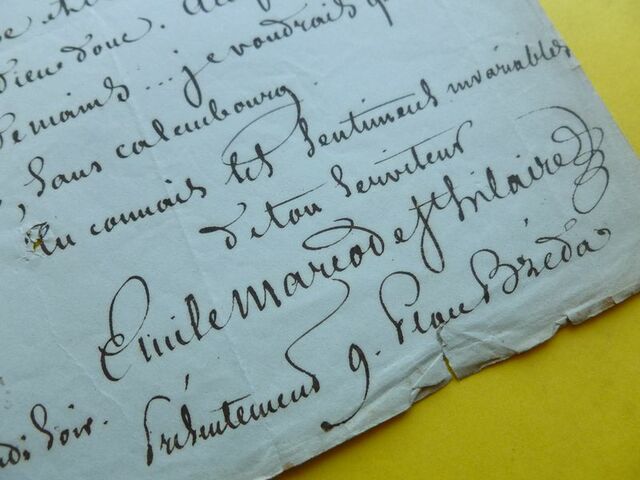 Dieu donc.
demain... je voudrais q
, Sans calembourg.
tu connais les sentiments invariables
de ton serviteur
Emile Marco de St hilaire
Présentement 9. Place Bréda
di soir.